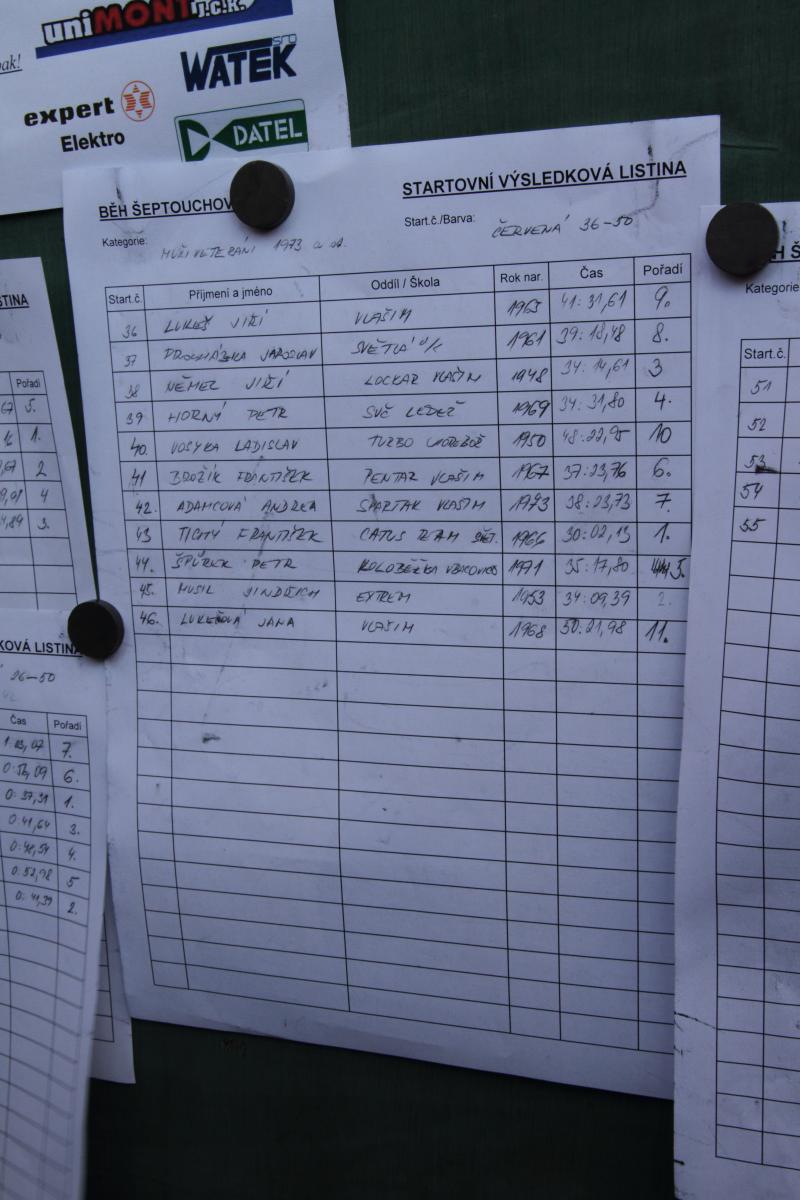 uniMONT s.r.o.
pak!
WATEK sro
expert
Elektro
DATEL
BĚH ŠEPTOUCHOV
STARTOVNÍ VÝSLEDKOVÁ LISTINA
Kategorie: MUŽI VETERÁNI 1973 a st.
Start.č./Barva: ČERVENÁ 36-50
Start.č. Příjmení a jméno Oddíl / Škola Rok nar. Čas Pořadí
36 LUKEŠ JIŘÍ VLAŠIM 1965 41:31,61 9.
37 PROCHÁZKA JAROSLAV SVĚTLÁ n/s 1961 39:18,48 8.
38 NĚMEC JIŘÍ LOCKAR VLAŠIM 1948 34:14,61 3
39 HORNÝ PETR SVČ LEDEČ 1969 34:31,80 4.
40. VOSYKA LADISLAV TURBO 1950 48:22,95 10
41 BROŽÍK FRANTIŠEK PENTAR VLAŠIM 1967 37:23,76 6.
42. ADAMCOVÁ ANDREA SPARTAK VLAŠIM 1973 38:23,73 7.
43 TICHÝ FRANTIŠEK CATUS TEAM SVĚT. 1966 30:02,13 1.
44. ŠPŮREK PETR KOLOBĚŽKA 1971 35:17,80 5.
45. MUSIL JINDŘICH EXTREM 1953 34:09,39 2.
46. LUKEŠOVÁ JANA VLAŠIM 1968 50:21,98 11.
STINA
Pořadí
67 5.
1.
2
9,01 4
4,89 3.
KOVÁ LISTINA
36-50
Čas Pořadí
7.
6.
0:37,31 1.
0:41,64 3.
4.
0:52,98 5
0:41,39 2.
H Š
Kategorie
Start.č.
51
52
53
54
55